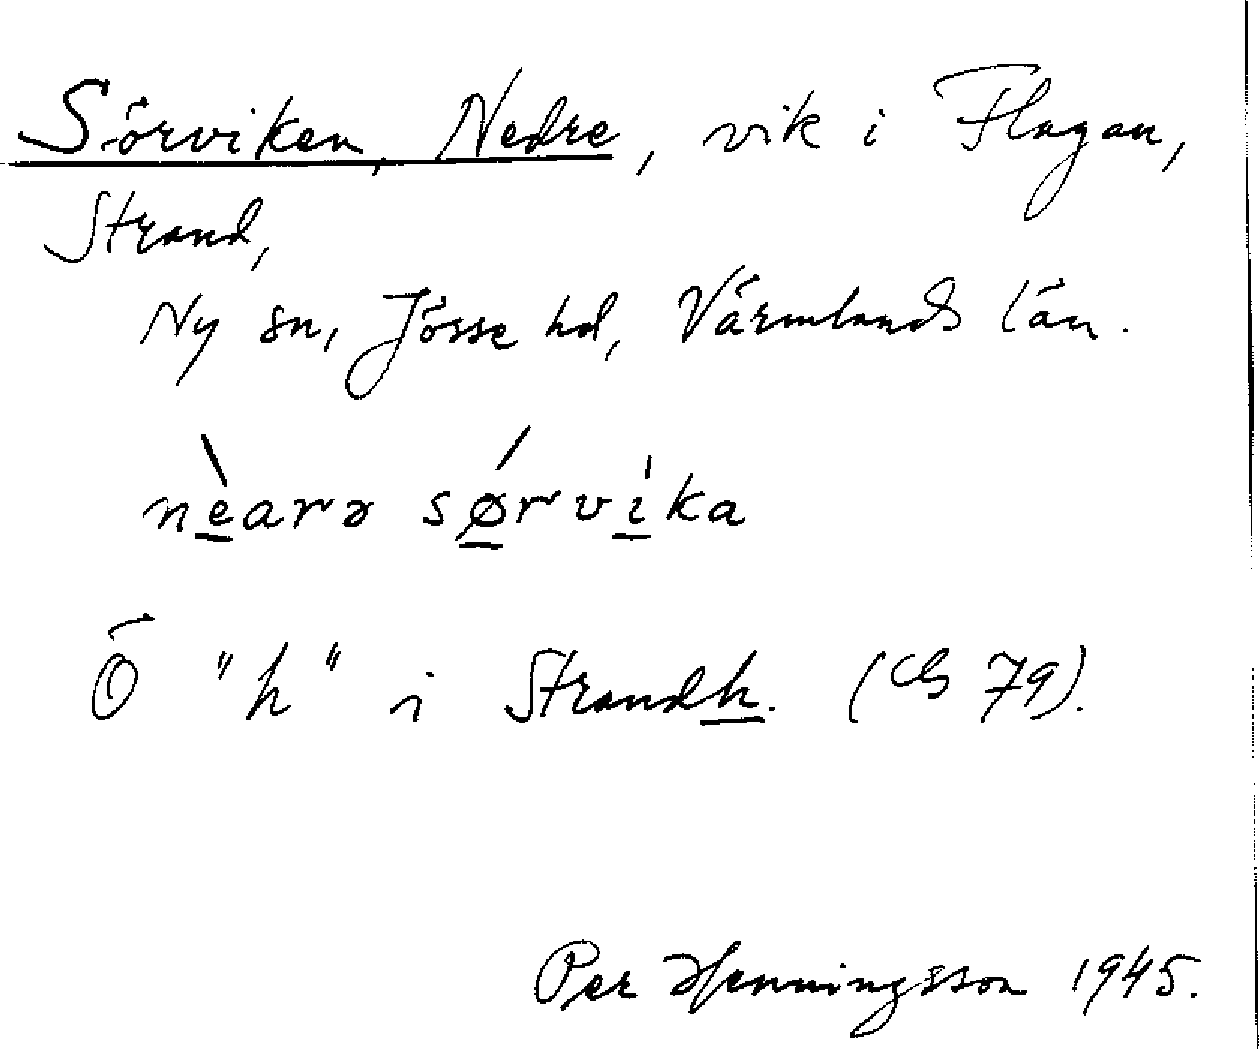 Sörviken, Nedre, vik i Flagan,
Strand,
Ny sn, Jösse hd, Värmlands län.
nèarə sǿrvika
Ö "h" i Strandh. (CB 79).
Per Henningsson 1945.